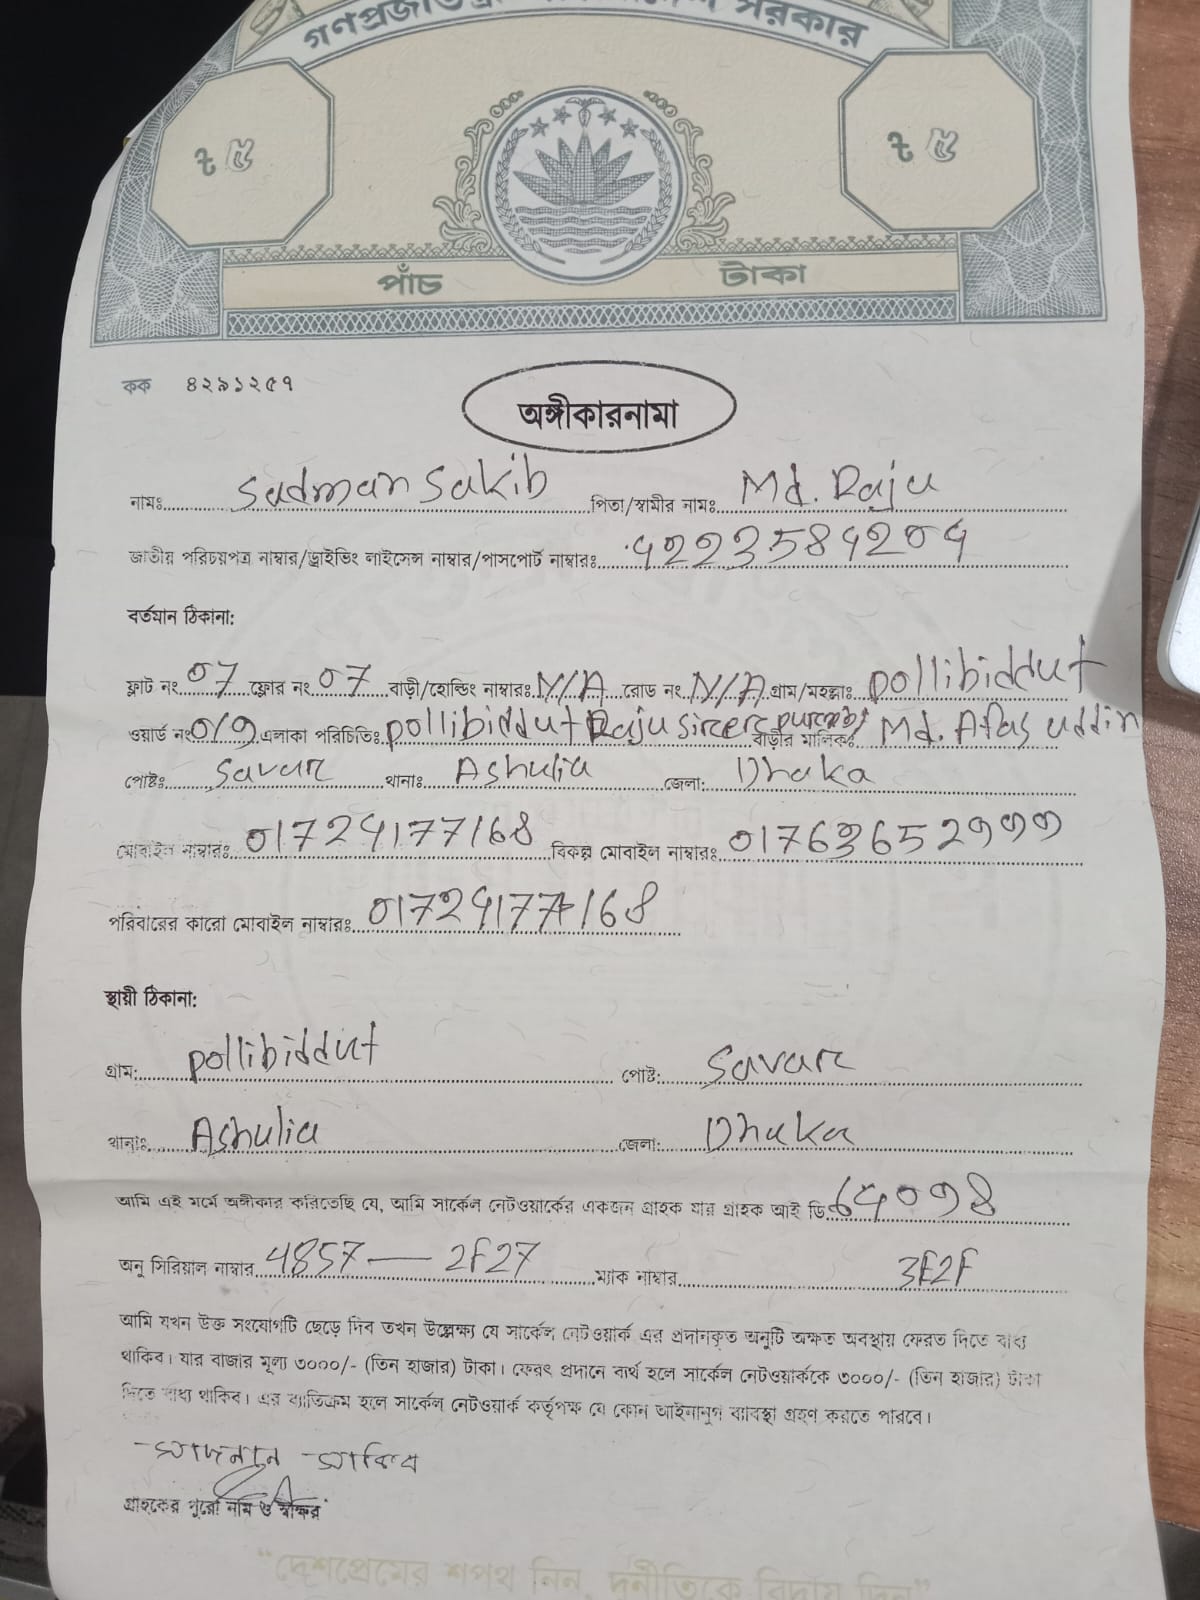 গণপ্রজাতন্ত্রী বাংলাদেশ সরকার
৳ ৫ ৳ ৫
পাঁচ টাকা
কক ৪২৯১২৫৭
অঙ্গীকারনামা
নামঃ Sadman Sakib পিতা/স্বামীর নামঃ Md. Raju
জাতীয় পরিচয়পত্র নাম্বার/ড্রাইভিং লাইসেন্স নাম্বার/পাসপোর্ট নাম্বারঃ
বর্তমান ঠিকানা:
ফ্লাট নং 07 ফ্লোর নং 07 বাড়ী/হোল্ডিং নাম্বারঃ N/A রোড নং N/A গ্রাম/মহল্লাঃ pollibiddut
ওয়ার্ড নং এলাকা পরিচিতিঃ pollibiddut Raju বাড়ীর মালিকঃ Md. Uddin
পোষ্টঃ Savar থানাঃ Ashulia জেলা: Dhaka
মোবাইল নাম্বারঃ 01724177168 বিকল্প মোবাইল নাম্বারঃ
পরিবারের কারো মোবাইল নাম্বারঃ 01724177168
স্থায়ী ঠিকানা:
গ্রাম: pollibiddut পোষ্ট: Savar
থানাঃ Ashulia জেলা: Dhaka
আমি এই মর্মে অঙ্গীকার করিতেছি যে, আমি সার্কেল নেটওয়ার্কের একজন গ্রাহক যার গ্রাহক আই ডি
অনু সিরিয়াল নাম্বার 4857 — 2F27 ম্যাক নাম্বার 3F2F
আমি যখন উক্ত সংযোগটি ছেড়ে দিব তখন উল্লেক্ষ্য যে সার্কেল নেটওয়ার্ক এর প্রদানকৃত অনুটি অক্ষত অবস্থায় ফেরত দিতে বাধ্য
থাকিব। যার বাজার মূল্য ৩০০০/- (তিন হাজার) টাকা। ফেরৎ প্রদানে ব্যর্থ হলে সার্কেল নেটওয়ার্ককে ৩০০০/- (তিন হাজার) টাকা
দিতে বাধ্য থাকিব। এর ব্যতিক্রম হলে সার্কেল নেটওয়ার্ক কর্তৃপক্ষ যে কোন আইনানুগ ব্যাবস্থা গ্রহণ করতে পারবে।
সাদমান সাকিব
গ্রাহকের পুরো নাম ও স্বাক্ষর
“দেশপ্রেমের শপথ নিন, দুর্নীতিকে বিদায় দিন”